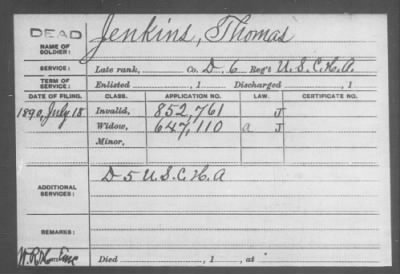 DEAD
NAME OF SOLDIER: Jenkins, Thomas
SERVICE: Late rank, Co. D, 6 Reg't U.S.C.H.A.
TERM OF SERVICE: Enlisted , 1 Discharged , 1
DATE OF FILING. CLASS. APPLICATION NO. LAW. CERTIFICATE NO.
1890, July 18 Invalid, 852,761 J
Widow, 647,110 a J
Minor,
ADDITIONAL SERVICES: D 5 U.S.C.H.A
REMARKS:
Died , 1 , at